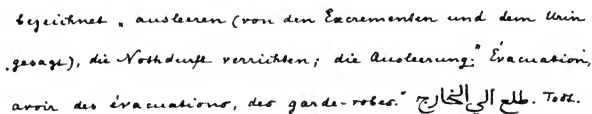 bezeichnet „ausleeren (von den Excrementen und dem Urin
gesagt), die Nothdurft verrichten; die Ausleerung." Évacuation,
avoir des évacuations, des garde-robes." طلع الي الخارج. Tost.